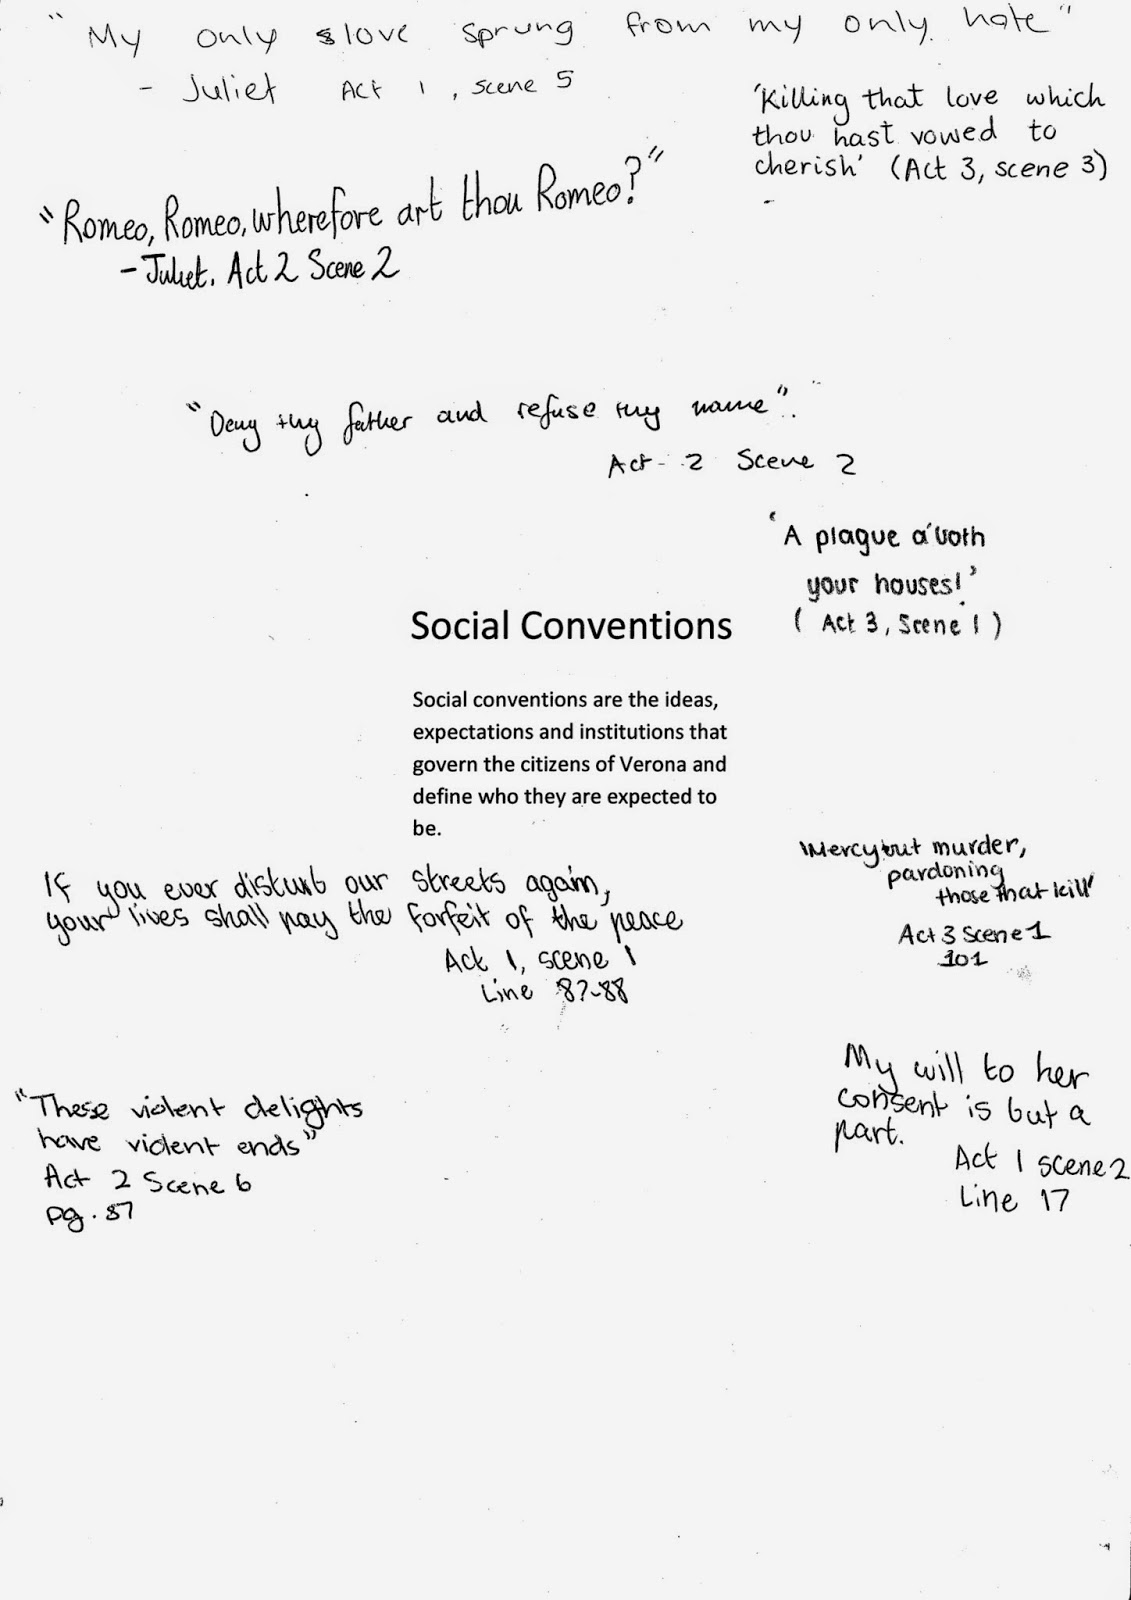 "My only love sprung from my only hate"
- Juliet Act 1, scene 5
'Killing that love which
thou hast vowed to
cherish' (Act 3, scene 3)
"Romeo, Romeo, wherefore art thou Romeo?"
- Juliet. Act 2 Scene 2
"Deny thy father and refuse thy name".
Act - 2 Scene 2
'A plague a'both
your houses!'
( Act 3, Scene 1 )
Social Conventions
Social conventions are the ideas,
expectations and institutions that
govern the citizens of Verona and
define who they are expected to
be.
If you ever disturb our streets again,
your lives shall pay the forfeit of the peace
Act 1, scene 1
Line 87-88
'Mercy but murder,
pardoning
those that kill'
Act 3 Scene 1
101
"These violent delights
have violent ends"
Act 2 Scene 6
pg. 87
My will to her
consent is but a
part.
Act 1 scene 2
Line 17